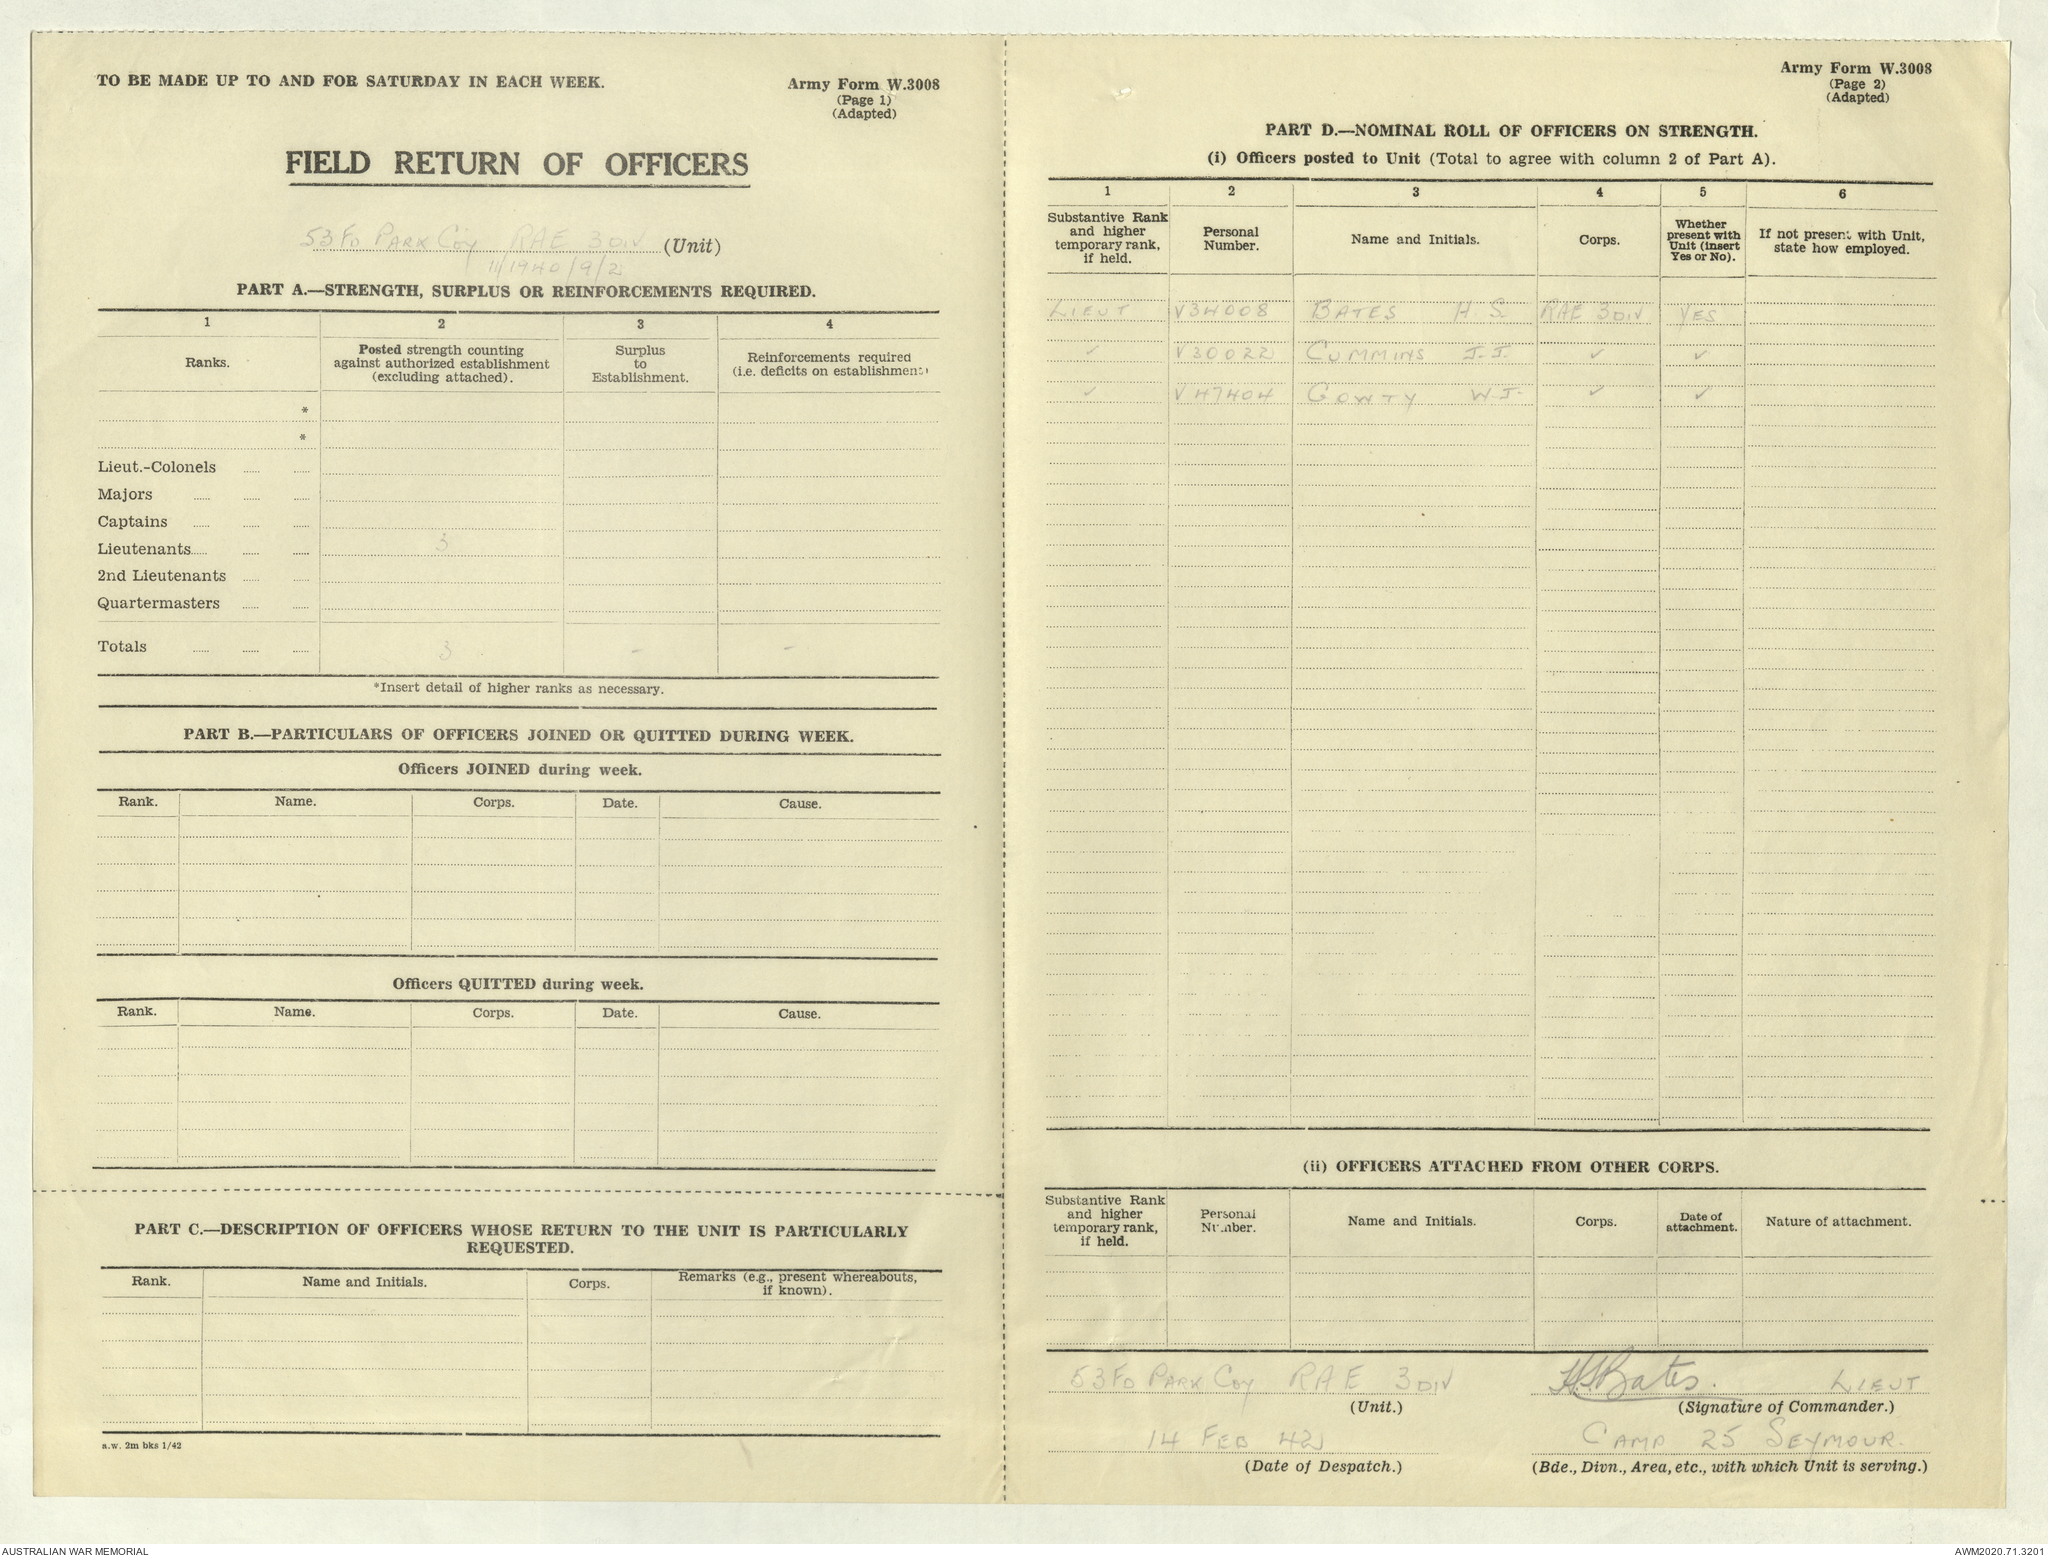 TO BE MADE UP TO AND FOR SATURDAY IN EACH WEEK.
Army Form W.3008
(Page 1)
(Adapted)
FIELD RETURN OF OFFICERS
53 FD PARK COY RAE 3 DIV (Unit)
11/1940/9/2
PART A.—STRENGTH, SURPLUS OR REINFORCEMENTS REQUIRED.
1 2 3 4
Ranks. Posted strength counting against authorized establishment (excluding attached). Surplus to Establishment. Reinforcements required (i.e. deficits on establishment)
*
*
Lieut.-Colonels
Majors
Captains
Lieutenants 3
2nd Lieutenants
Quartermasters
Totals 3 - -
*Insert detail of higher ranks as necessary.
PART B.—PARTICULARS OF OFFICERS JOINED OR QUITTED DURING WEEK.
Officers JOINED during week.
Rank. Name. Corps. Date. Cause.
Officers QUITTED during week.
Rank. Name. Corps. Date. Cause.
PART C.—DESCRIPTION OF OFFICERS WHOSE RETURN TO THE UNIT IS PARTICULARLY
REQUESTED.
Rank. Name and Initials. Corps. Remarks (e.g., present whereabouts, if known).
a.w. 2m bks 1/42
Army Form W.3008
(Page 2)
(Adapted)
PART D.—NOMINAL ROLL OF OFFICERS ON STRENGTH.
(i) Officers posted to Unit (Total to agree with column 2 of Part A).
1 2 3 4 5 6
Substantive Rank and higher temporary rank, if held. Personal Number. Name and Initials. Corps. Whether present with Unit (insert Yes or No). If not present with Unit, state how employed.
LIEUT V34008 BATES H.S. RAE 3 DIV YES
✓ V30022 CUMMINS J.J. ✓ ✓
✓ V47404 GOWTY W.J. ✓ ✓
(ii) OFFICERS ATTACHED FROM OTHER CORPS.
Substantive Rank and higher temporary rank, if held. Personal Number. Name and Initials. Corps. Date of attachment. Nature of attachment.
53 FD PARK COY RAE 3 DIV
(Unit.)
H.S. Bates. LIEUT
(Signature of Commander.)
14 FEB 42
(Date of Despatch.)
CAMP 25 SEYMOUR.
(Bde., Divn., Area, etc., with which Unit is serving.)
AUSTRALIAN WAR MEMORIAL
AWM2020.71.3201